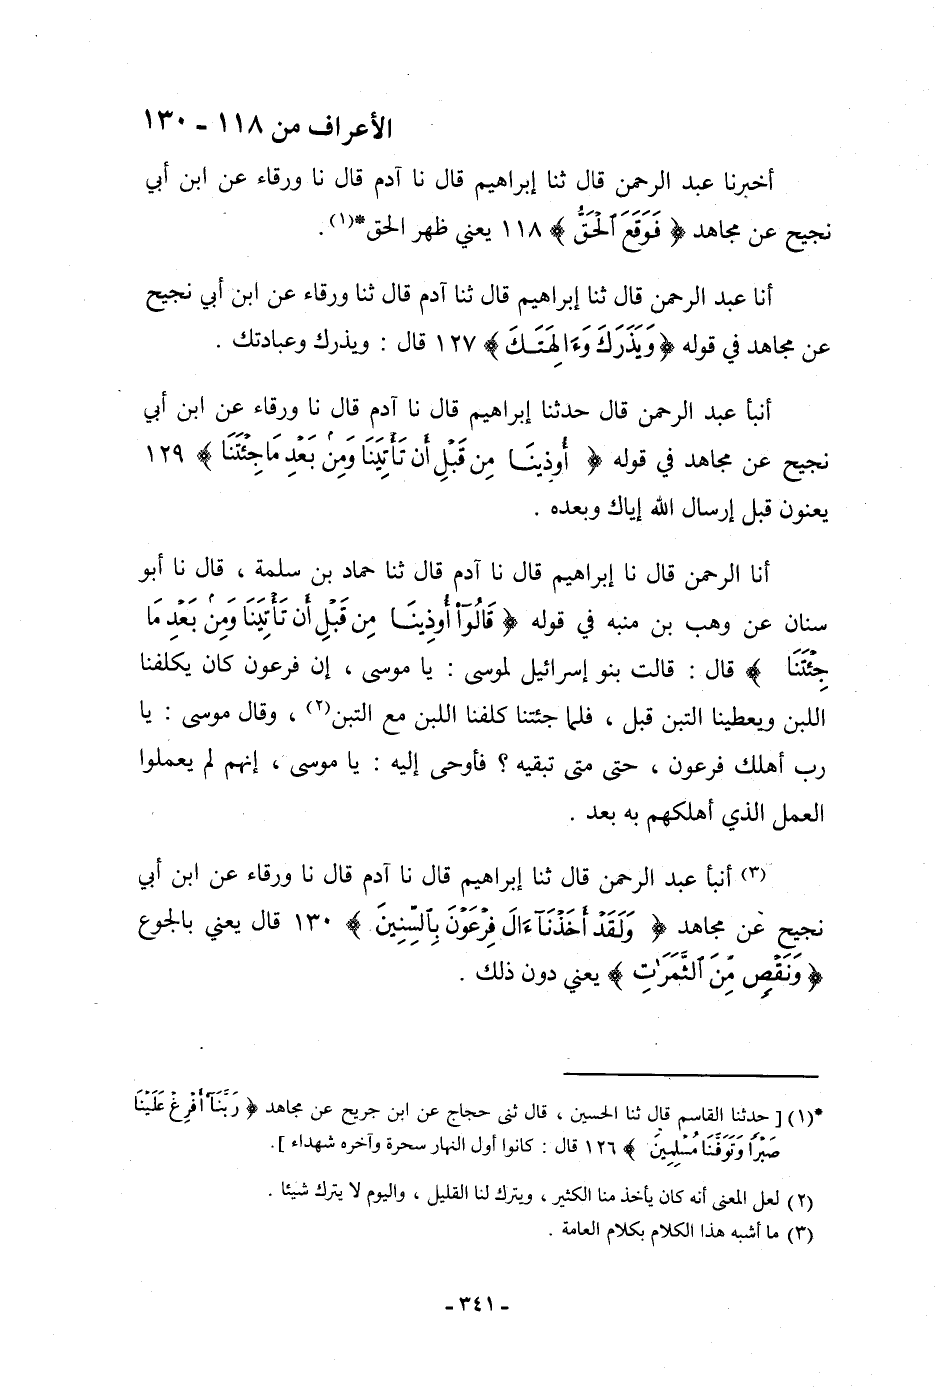 الأعراف من ١١٨ - ١٣٠
أخبرنا عبد الرحمن قال ثنا إبراهيم قال نا آدم قال نا ورقاء عن ابن أبي
نجيح عن مجاهد ﴿ فَوَقَعَ ٱلْحَقُّ ﴾ ١١٨ يعني ظهر الحق*(١) .
أنا عبد الرحمن قال ثنا إبراهيم قال ثنا آدم قال ثنا ورقاء عن ابن أبي نجيح
عن مجاهد في قوله ﴿ وَيَذَرَكَ وَءَالِهَتَكَ ﴾ ١٢٧ قال : ويذرك وعبادتك .
أنبأ عبد الرحمن قال حدثنا إبراهيم قال نا آدم قال نا ورقاء عن ابن أبي
نجيح عن مجاهد في قوله ﴿ أُوذِينَا مِن قَبْلِ أَن تَأْتِيَنَا وَمِنۢ بَعْدِ مَا جِئْتَنَا ﴾ ١٢٩
يعنون قبل إرسال الله إياك وبعده .
أنا الرحمن قال نا إبراهيم قال نا آدم قال ثنا حماد بن سلمة ، قال نا أبو
سنان عن وهب بن منبه في قوله ﴿ قَالُوٓا۟ أُوذِينَا مِن قَبْلِ أَن تَأْتِيَنَا وَمِنۢ بَعْدِ مَا
جِئْتَنَا ﴾ قال : قالت بنو إسرائيل لموسى : يا موسى ، إن فرعون كان يكلفنا
اللبن ويعطينا التبن قبل ، فلما جئتنا كلفنا اللبن مع التبن(٢) ، وقال موسى : يا
رب أهلك فرعون ، حتى متى تبقيه ؟ فأوحى إليه : يا موسى ، إنهم لم يعملوا
العمل الذي أهلكهم به بعد .
(٣) أنبأ عبد الرحمن قال ثنا إبراهيم قال نا آدم قال نا ورقاء عن ابن أبي
نجيح عن مجاهد ﴿ وَلَقَدْ أَخَذْنَآ ءَالَ فِرْعَوْنَ بِٱلسِّنِينَ ﴾ ١٣٠ قال يعني بالجوع
﴿ وَنَقْصٍ مِّنَ ٱلثَّمَرَٰتِ ﴾ يعني دون ذلك .
*(١) [ حدثنا القاسم قال ثنا الحسين ، قال ثنى حجاج عن ابن جريح عن مجاهد ﴿ رَبَّنَآ أَفْرِغْ عَلَيْنَا
صَبْرًا وَتَوَفَّنَا مُسْلِمِينَ ﴾ ١٢٦ قال : كانوا أول النهار سحرة وآخره شهداء ] .
(٢) لعل المعنى أنه كان يأخذ منا الكثير ، ويترك لنا القليل ، واليوم لا يترك شيئا .
(٣) ما أشبه هذا الكلام بكلام العامة .
- ٣٤١ -